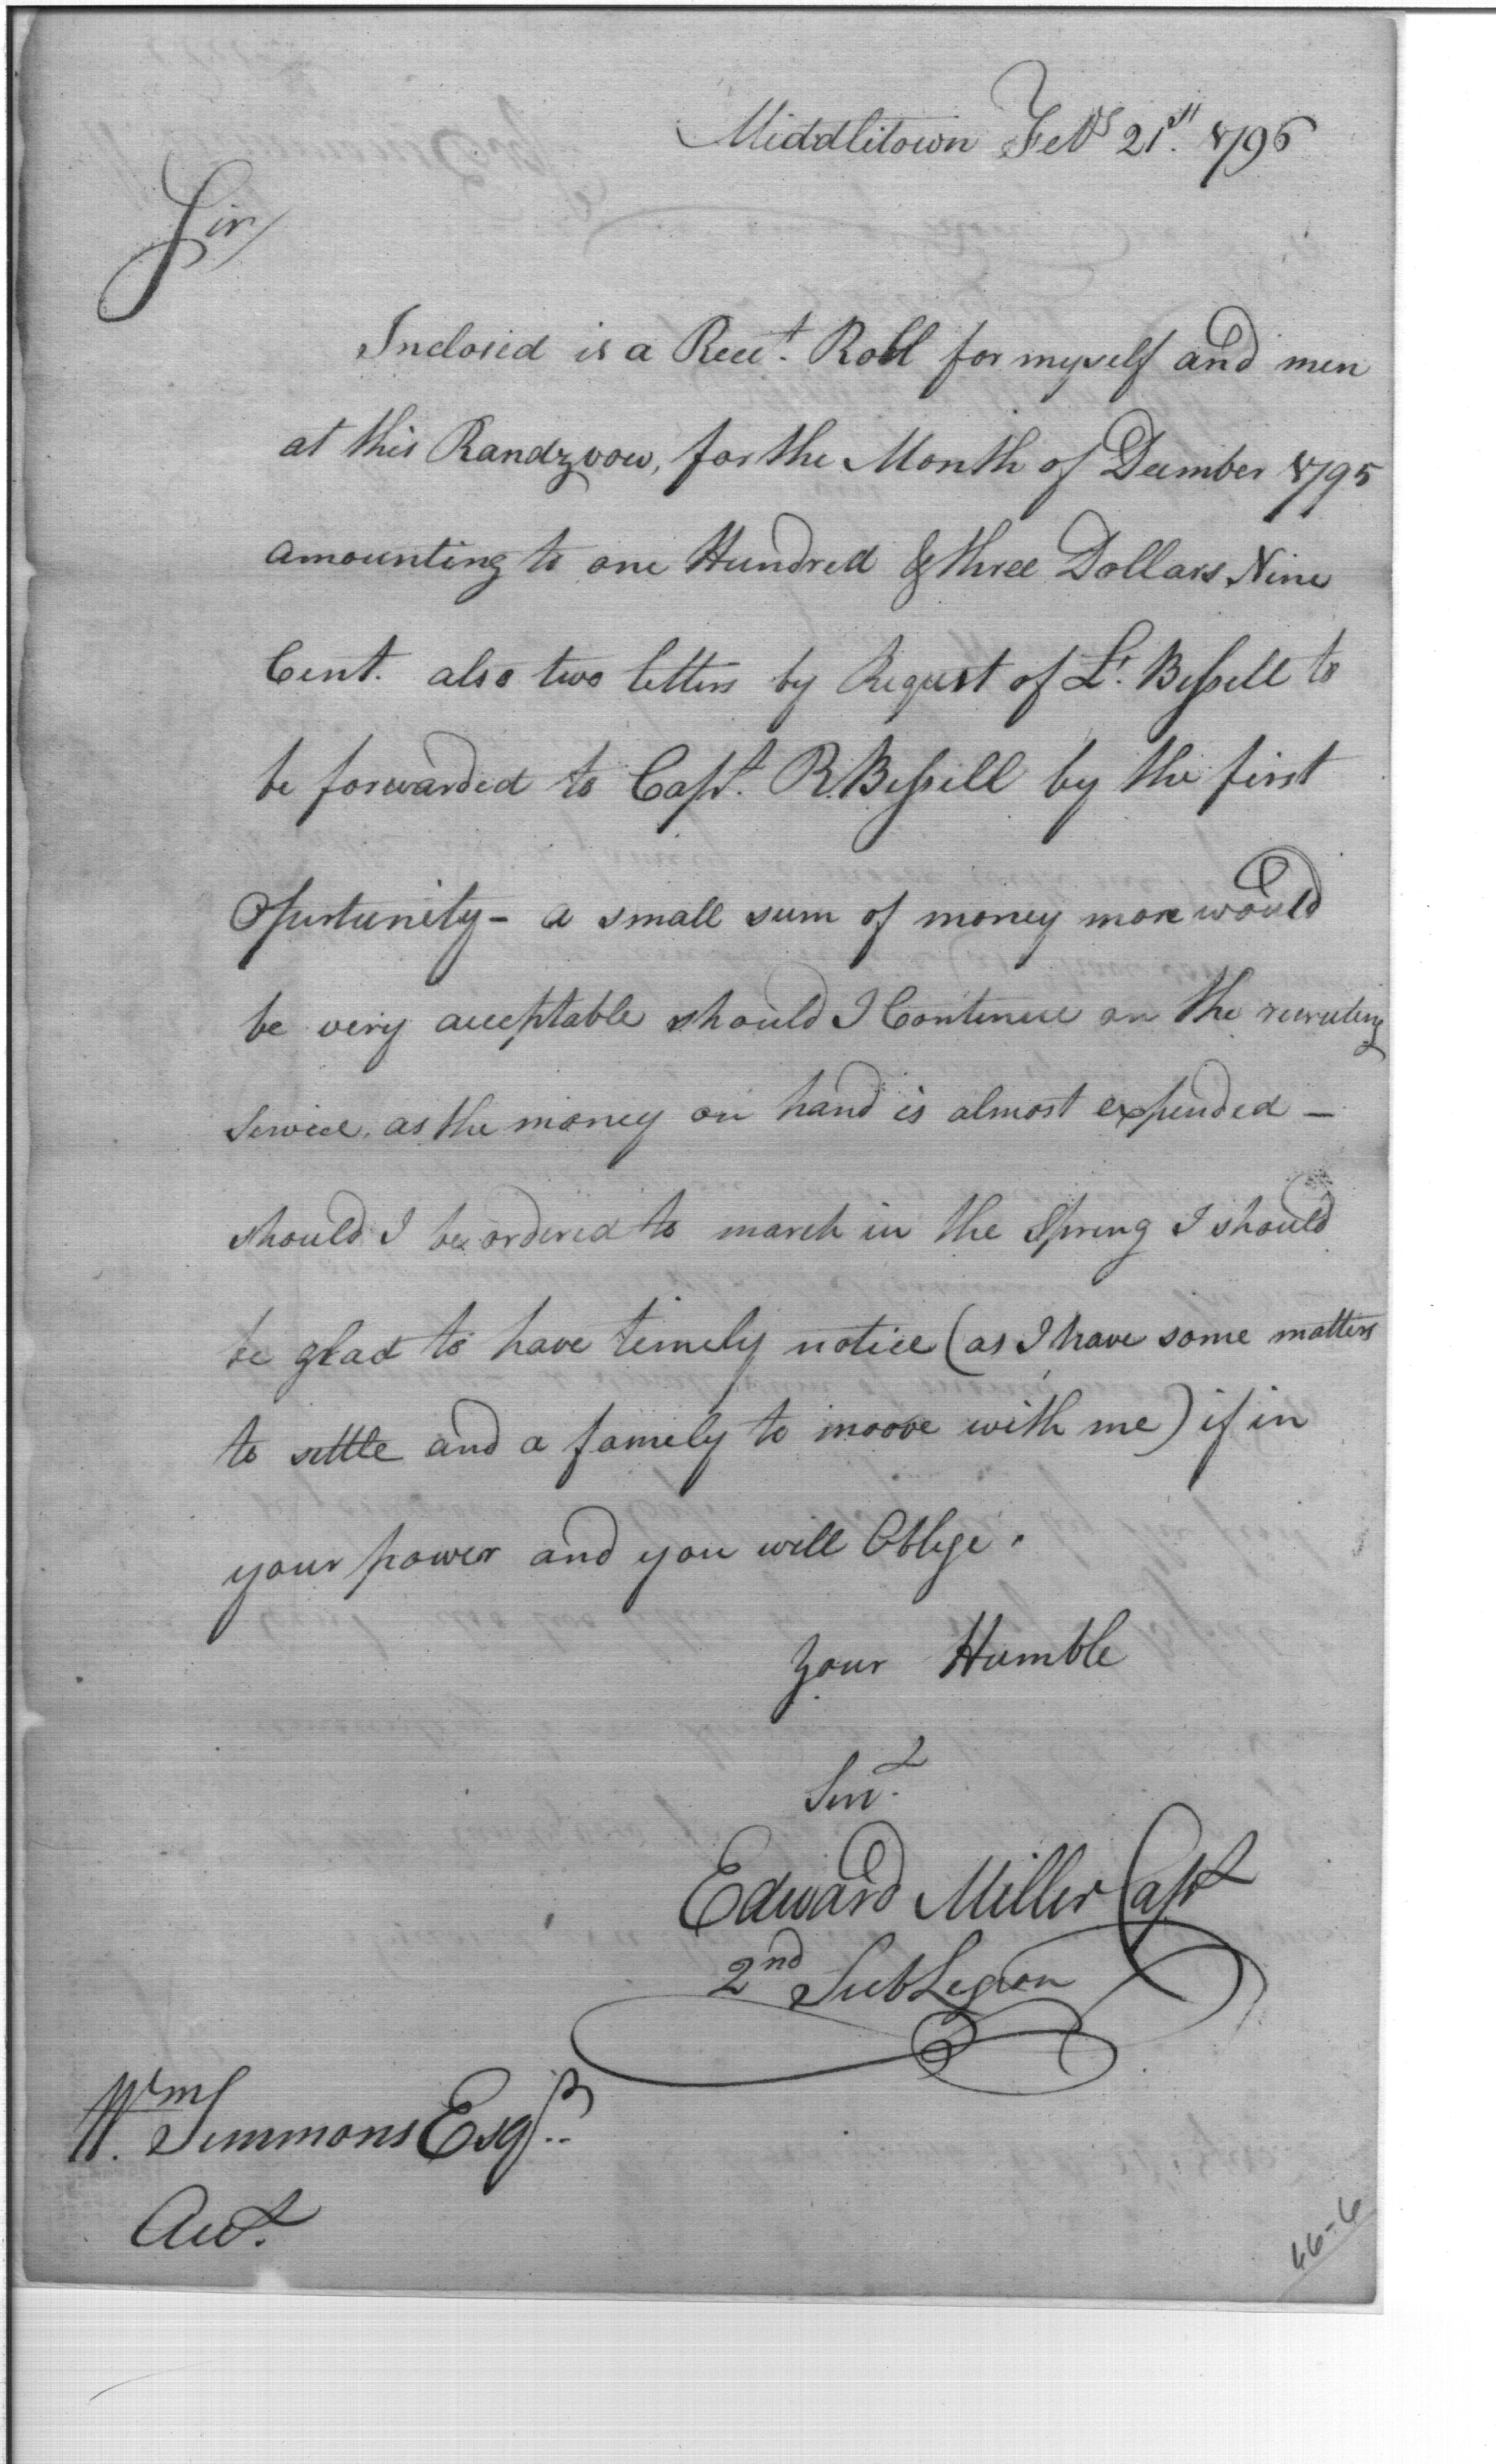 Middletown Feby 21st. 1796
Sir/
Inclosed is a Recet. Roll for myself and men
at this Randzvow, for the Month of December 1795
amounting to one Hundred & three Dollars Nine
Cent. also two letters by Request of Lt. Bissell to
be forwarded to Capt. R. Bissell by the first
Opurtunity - a small sum of money more would
be very acceptable should I Continue on the recruting
service, as the money on hand is almost expended -
should I be ordered to march in the Spring I should
be glad to have timely notice (as I have some matters
to settle and a family to moove with me) if in
your power and you will Oblege.
your Humble
Servt.
Edward Miller Capt
2nd Sub Legion
Wm. Simmons Esqr..
Act.
46-6